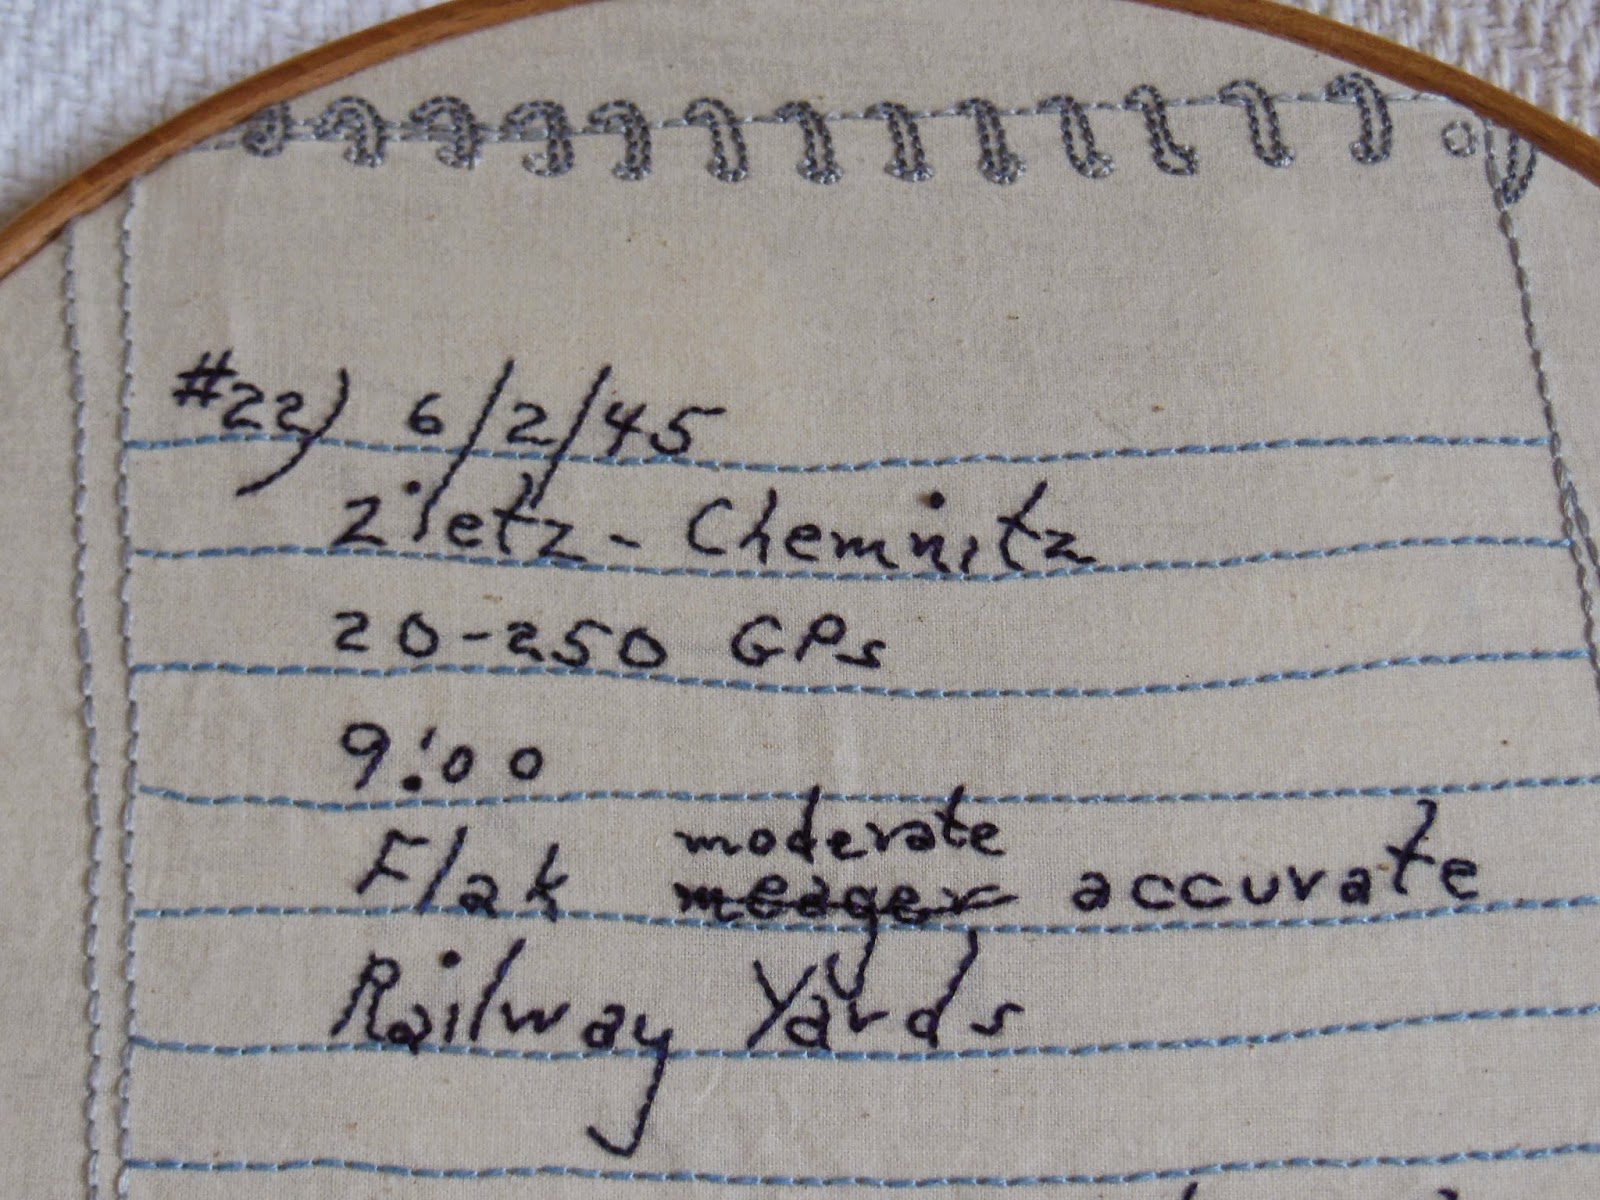 #22) 6/2/45
Zietz - Chemnitz
20-250 GPs
9:00
Flak moderate meager accurate
Railway Yards